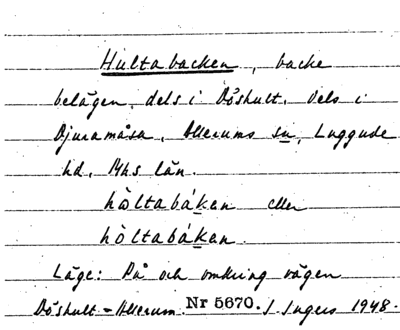 Hultabacken, backe
belägen, dels i Döshult, dels i
Djuramåsa, Allerums sn, Luggude
hd, Mhs län.
hòltabákan eller
hòltabákan.
Läge: På och omkring vägen
Döshult - Allerum. Nr 5670. J. Ingers 1948.